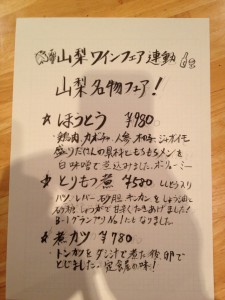 山梨ワインフェア連動
山梨名物フェア!
☆ほうとう ¥980
・鶏肉、カボチャ、人参、ジャガイモ
盛りだくさんの具材ともちもちメンを
白味噌で煮込みました。ボリューミー
☆とりもつ煮 ¥580
ハツ、レバー、砂肝、キンカンをしょう油に
砂糖、しょうがで甘辛くたきあげました!
B-1グランプリNo.1にもなりました。
☆煮カツ ¥780
・トンカツをダシ汁で煮た後、卵で
とじました。定食屋の味!